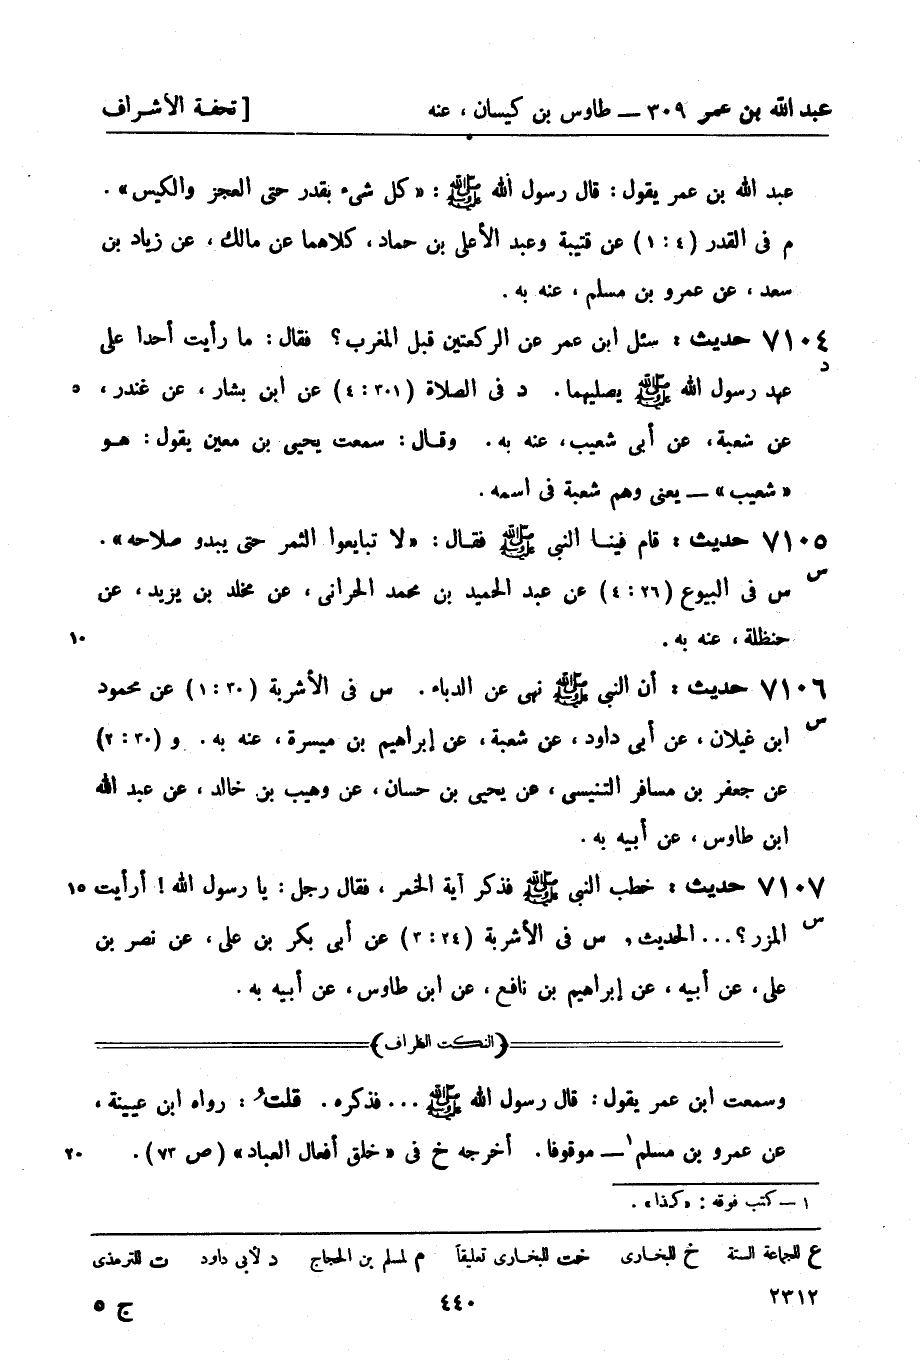 عبد الله بن عمر ٣٠٩ — طاوس بن كيسان ، عنه [ تحفة الأشراف
عبد الله بن عمر يقول : قال رسول الله ﷺ : «كل شىء بقدر حتى العجز والكيس» .
م فى القدر (٤ : ١) عن قتيبة وعبد الأعلى بن حماد، كلاهما عن مالك ، عن زياد بن
سعد ، عن عمرو بن مسلم ، عنه به .
٧١٠٤ حديث : سئل ابن عمر عن الركعتين قبل المغرب ؟ فقال : ما رأيت أحدا على
د
عهد رسول الله ﷺ يصليهما . د فى الصلاة (٣٠١ : ٤) عن ابن بشار ، عن غندر ، ٥
عن شعبة ، عن أبى شعيب ، عنه به . وقال : سمعت يحيى بن معين يقول : هو
«شعيب» — يعنى وهم شعبة فى اسمه .
٧١٠٥ حديث : قام فينا النبى ﷺ فقال : «لا تبايعوا الثمر حتى يبدو صلاحه» .
س
س فى البيوع (٢٦ : ٤) عن عبد الحميد بن محمد الحرانى ، عن مخلد بن يزيد ، عن
حنظلة ، عنه به . ١٠
٧١٠٦ حديث : أن النبى ﷺ نهى عن الدباء . س فى الأشربة (٣٠ : ١) عن محمود
س
ابن غيلان ، عن أبى داود ، عن شعبة ، عن إبراهيم بن ميسرة ، عنه به . و (٣٠ : ٢)
عن جعفر بن مسافر التنيسى ، عن يحيى بن حسان ، عن وهيب بن خالد ، عن عبد الله
ابن طاوس ، عن أبيه به .
٧١٠٧ حديث : خطب النبى ﷺ فذكر آية الخمر ، فقال رجل : يا رسول الله ! أرأيت ١٥
س
المزر ؟ ... الحديث . س فى الأشربة (٢٤ : ٣) عن أبى بكر بن على ، عن نصر بن
على ، عن أبيه ، عن إبراهيم بن نافع ، عن ابن طاوس ، عن أبيه به .
(النكت الظراف)
وسمعت ابن عمر يقول : قال رسول الله ﷺ ... فذكره . قلتُ : رواه ابن عيينة ،
عن عمرو بن مسلم١ — موقوفا . أخرجه خ فى «خلق أفعال العباد» (ص ٧٣) . ٢٠
١ — كتب فوقه : «كذا» .
ع للجماعة الستة خ للبخارى خت للبخارى تعليقاً م لمسلم بن الحجاج د لأبى داود ت للترمذى
٢٣١٢ ٤٤٠ ج ٥